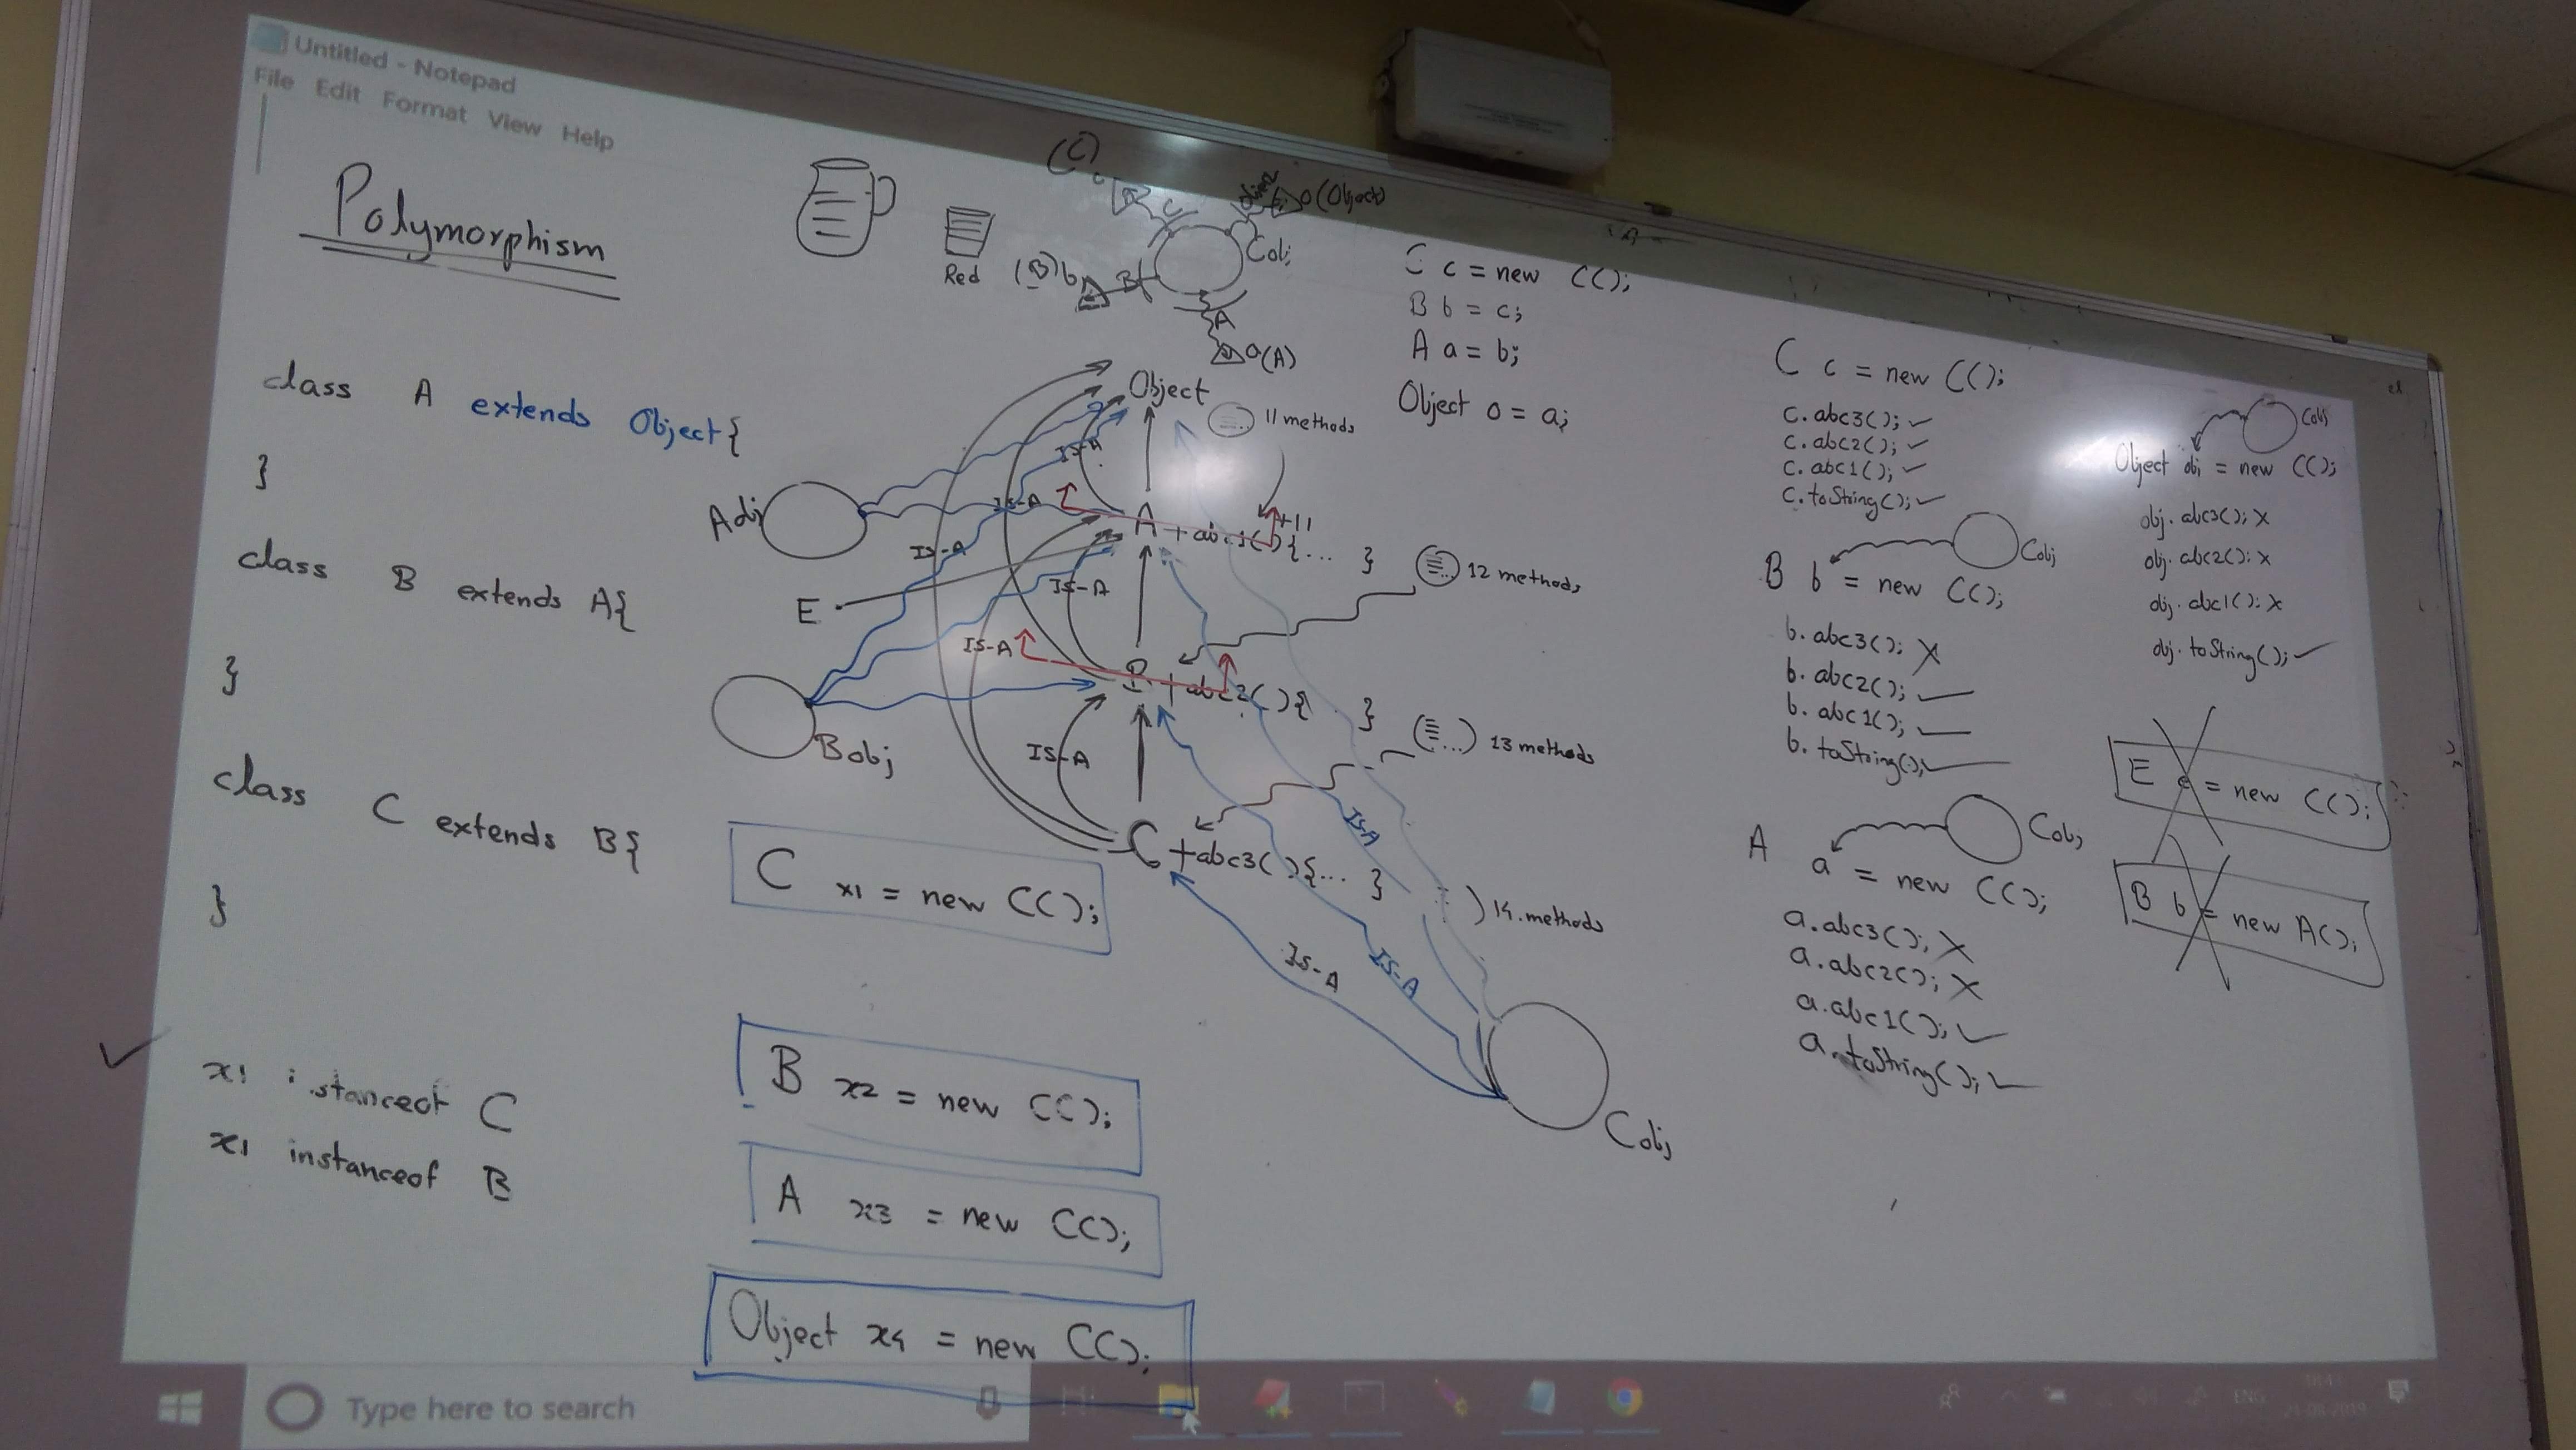 Untitled - Notepad
File Edit Format View Help
Polymorphism
class A extends Object{
}
class B extends A{
}
class C extends B{
}
x1 instanceof C
x1 instanceof B
Red
(C)
c
C
o(Object)
Cobj
(B) b
B
A
a(A)
Object
11 methods
IS-A
IS-A
Aobj
A +abc1(){... }
+11
IS-A
E
IS-A
12 methods
IS-A
B +abc2(){ . }
Bobj
IS-A
13 methods
C +abc3(){... }
IS-A
14 methods
IS-A
IS-A
Cobj
C x1 = new C();
B x2 = new C();
A x3 = new C();
Object x4 = new C();
C c = new C();
B b = c;
A a = b;
Object o = a;
C c = new C();
c.abc3(); ✓
c.abc2(); ✓
c.abc1(); ✓
c.toString(); ✓
Cobj
B b = new C();
b.abc3(); X
b.abc2(); ✓
b.abc1(); ✓
b.toString(); ✓
Cobj
A a = new C();
a.abc3(); X
a.abc2(); X
a.abc1(); ✓
a.toString(); ✓
Cobj
Object obj = new C();
obj.abc3(); X
obj.abc2(); X
obj.abc1(); X
obj.toString(); ✓
E e = new C();
B b = new A();
Type here to search
ENG
21-08-2019